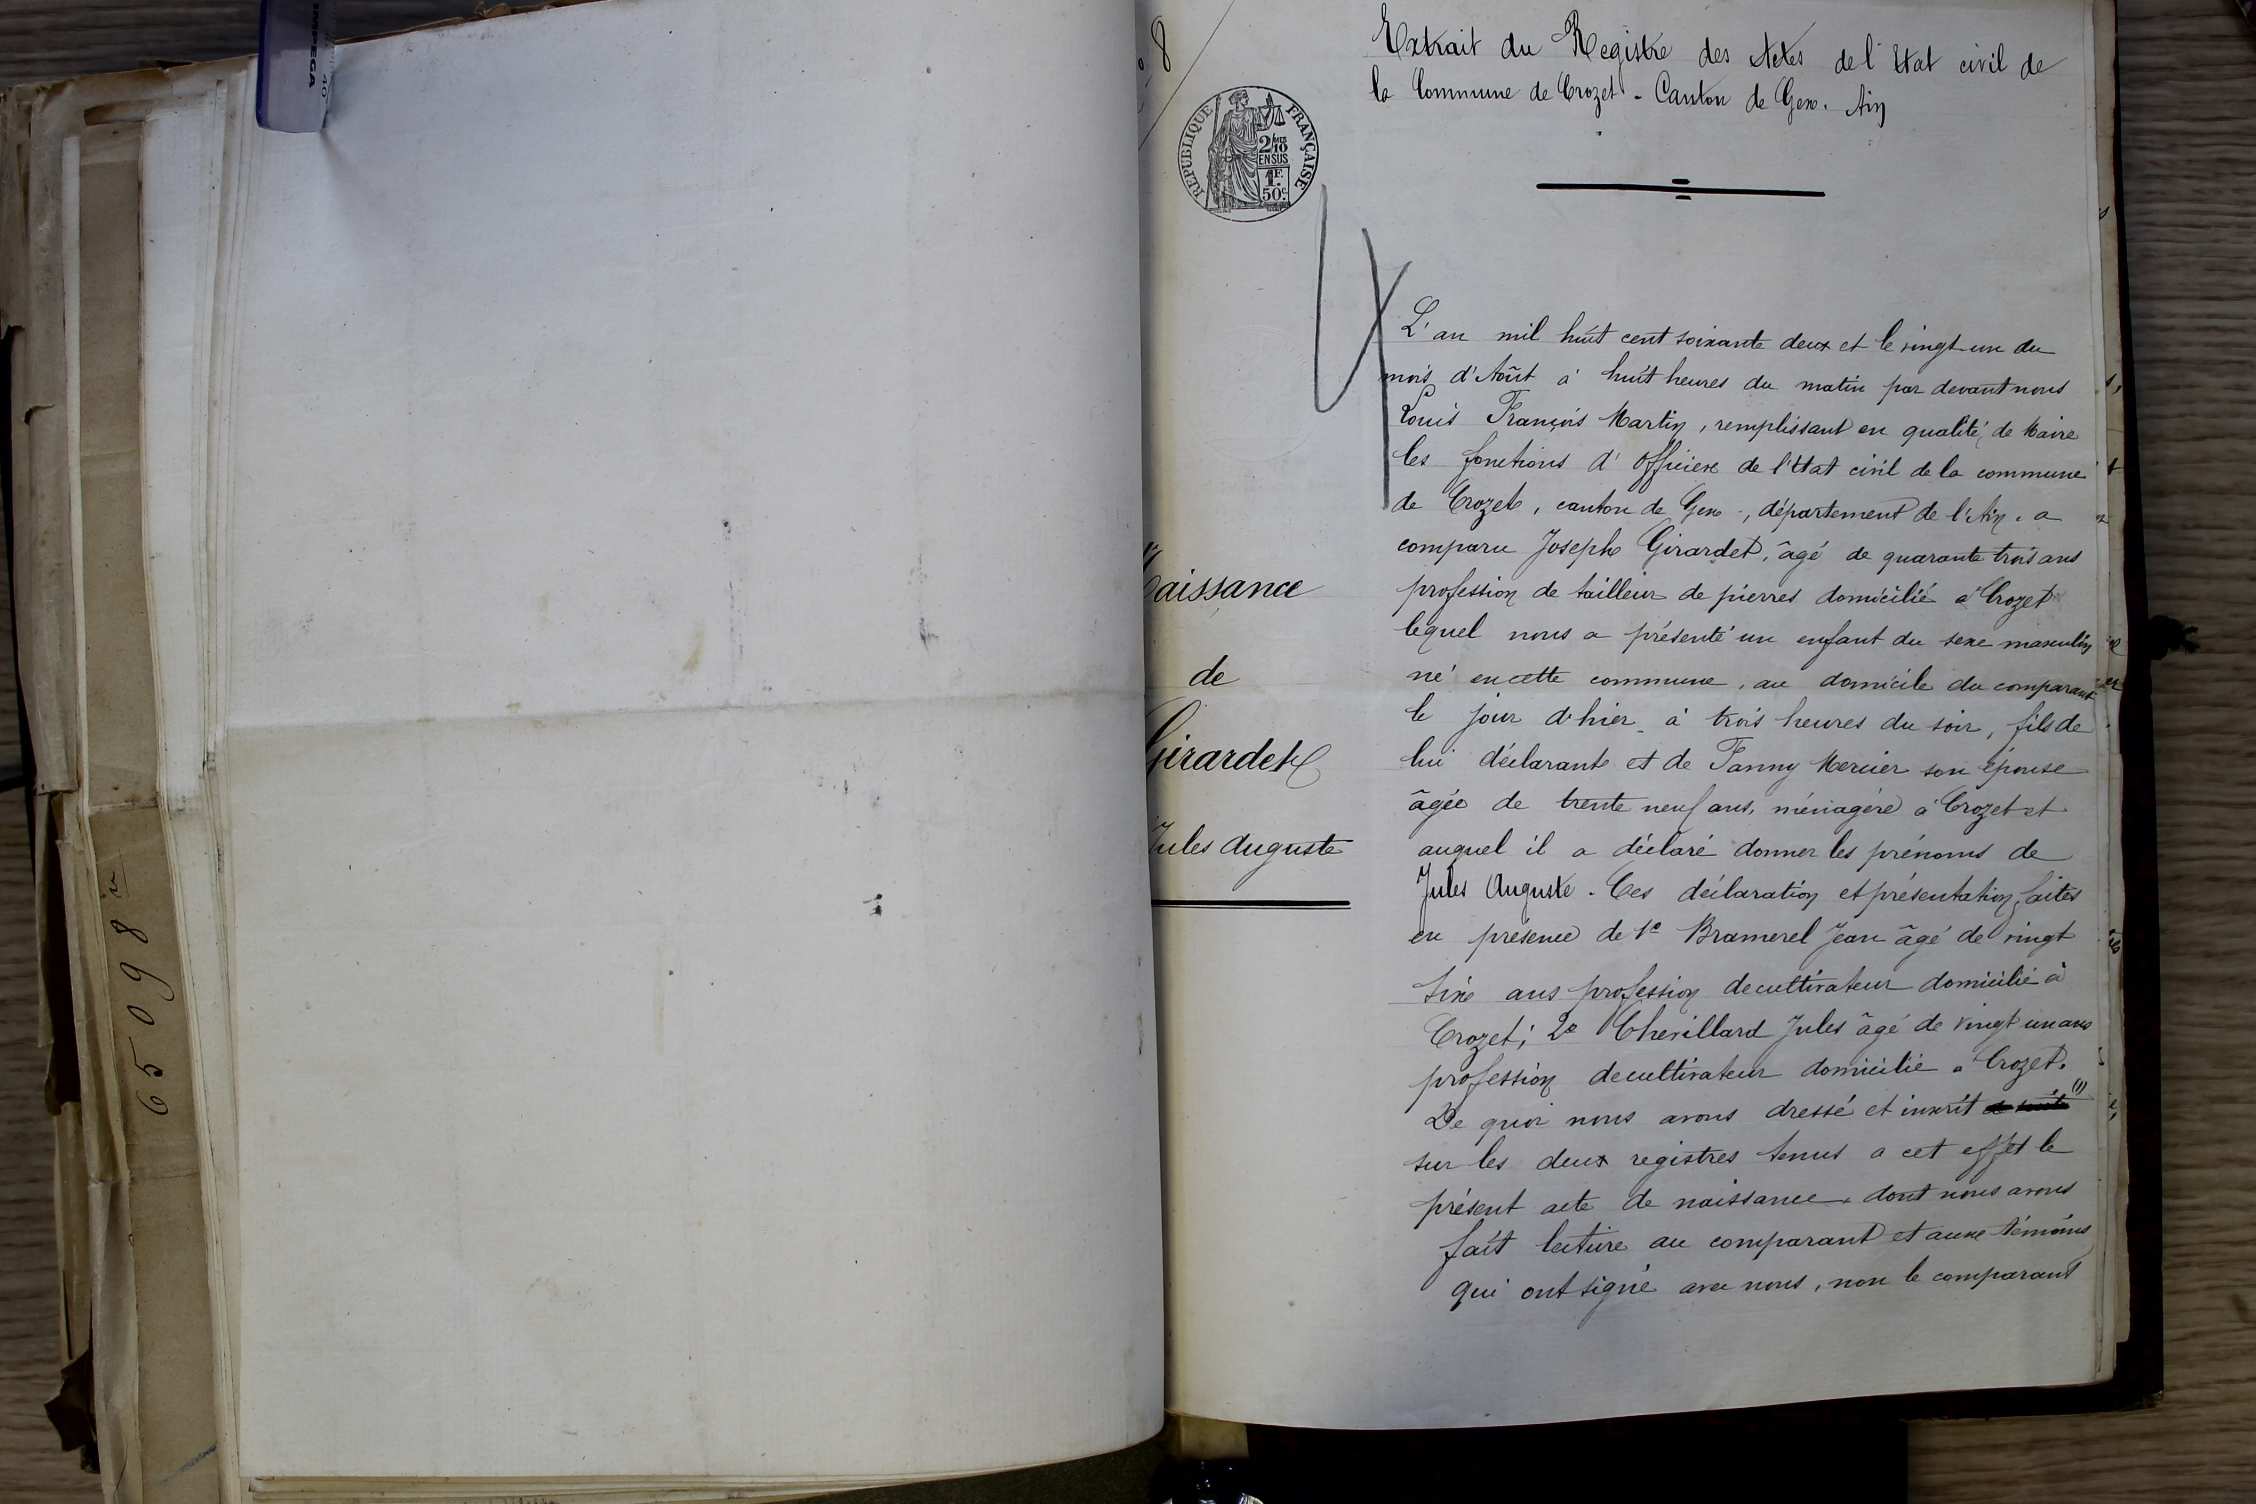 Extrait du Registre des Actes de l'Etat civil de
la Commune de Crozet - Canton de Gex. Ain
8
REPUBLIQUE FRANÇAISE
2/10
EN SUS
1F.
50c.
4
L'an mil huit cent soixante deux et le vingt un du
mois d'Août à huit heures du matin par devant nous
Louis François Martin, remplissant en qualité de Maire
les fonctions d'Officier de l'Etat civil de la commune
de Crozet, canton de Gex, département de l'Ain. a
comparu Joseph Girardet, âgé de quarante trois ans
profession de tailleur de pierres domicilié à Crozet
lequel nous a présenté un enfant du sexe masculin
né en cette commune, au domicile du comparant
le jour d'hier à trois heures du soir, fils de
lui déclarant et de Fanny Mercier son épouse
âgée de trente neuf ans, ménagère à Crozet et
auquel il a déclaré donner les prénoms de
Jules Auguste. Ces déclaration et présentation faites
en présence de 1e Bramerel Jean âgé de vingt
six ans profession de cultivateur domicilié à
Crozet; 2e Chevillard Jules âgé de vingt un ans
profession de cultivateur domicilié à Crozet.
De quoi nous avons dressé et inscrit de suite (1)
sur les deux registres tenus a cet effet le
présent acte de naissance, dont nous avons
fait lecture au comparant et aux témoins
qui ont signé avec nous, non le comparant
Naissance
de
Girardet
Jules Auguste
65098